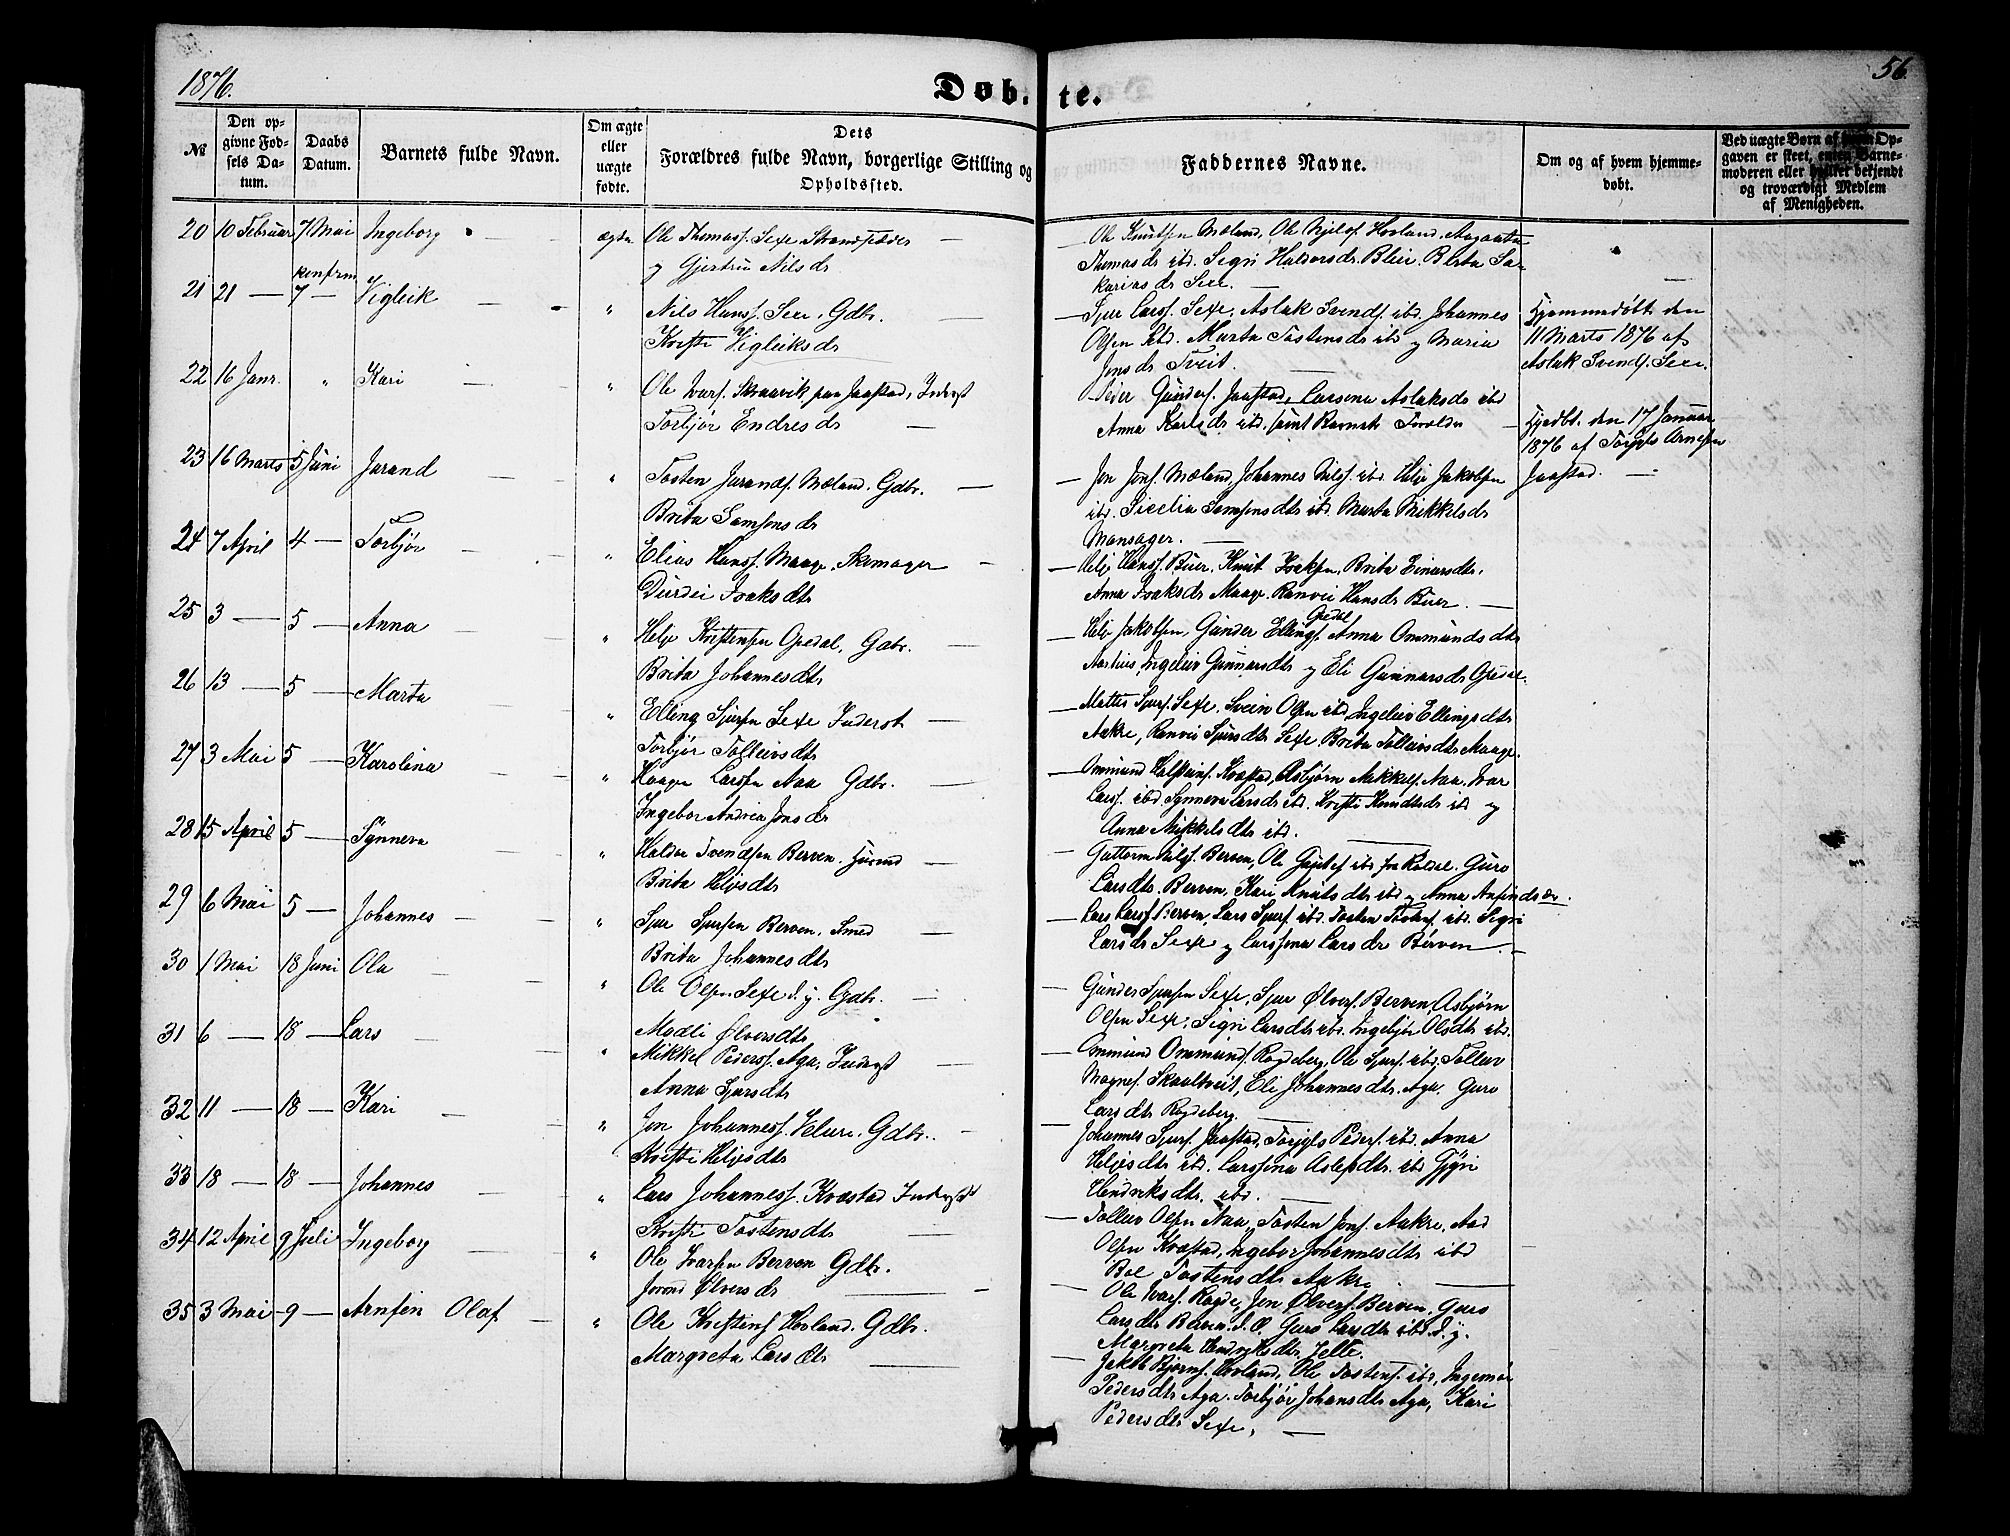 1876.
Døb-te.
56
№
Den opgivne Fødsels Datum.
Daabs Datum.
Barnets fulde Navn.
Om ægte eller uægte fødte.
Dets Forældres fulde Navn, borgerlige Stilling og Opholdssted.
Faddernes Navne.
Om og af hvem hjemmedøbt.
Ved uægte Børn af hvem Opgaven er skeet, enten Barnemoderen eller hvilket bekjendt og troværdigt Medlem af Menigheden.
20 10 Februar 7 Mai Ingeborg ægte Ole Thomass. Sexe
y Gjertrin Nilsdr
Ole Knutsen Mæland, Ole Kjelsf Hovland
Thomasdr ibd. Segri Haldorsdr. Bleie. Brita Sa-
kariasdr Sexe.
konfrm
21 21 — 7 — Vigleik " Nils Hanss. Sexe, Gdbr.
Kristi Vigleiksdr
Sjur Larss. Sexe, Aslak Svends. ibd. Johannes
Olsen ibd. Marta Tostensdr ibd y Maria
Jonsdr Tveit.
Hjemmedøbt den
11 Marts 1876 af
Aslak Svends. Sexe.
22 16 Janr. " Kari " Ole Ivars. Skraavik paa Jaastad, Inderst
Torbjør Endresdr
Peder Gunders. Jaastad, Larsena Aslaksdr ibd
Anna Karlsdr ibd. samt Barnets Forældre
Hjedbt. den 17 Januar
1876 af Torgils Arnesen
Jaastad.
23 16 Marts 5 Juni Jorand " Tosten Jorands. Mæland. Gdbr.
Brita Samsonsdr
Jon Jons. Mæland, Johannes Nilss. ibd. Helje Jakobsen
ibd. Sicelia Samsonsdtr ibd. Marta Mikkelsdr
Mansager.
24 7 April 4 — Torbjør " Elias Hanss. Maage. Skomager
Durdei Isaksdtr
Helje Hanss. Buer. Knut Isaksen, Brita Einarsdtr.
Anna Isaksdr Maage. Ranvei Hansdr Buer.
25 3 — 5 — Anna " Helje Kristensen Opedal, Gdbr.
Brita Johannesdtr
Opedal
Helje Jakobsen, Gunder Ellings. Anna Ommundsdtr
Ingeleiv Gunnarsdtr y Eli Gunnarsdr Opedal.
26 13 — 5 — Marta " Elling Sjursen Sexe Inderst
Torbjør Tolleivsdtr
Mattis Sjurs. Sexe. Svein Olsen ibd, Ingeleiv Ellingsdtr
Aakre, Ranvei Sjursdtr Sexe Brita Tolleivsdtr Maage.
27 3 Mai 5 — Karolina " Haage Larsen Aaa Gdbr.
Ingebor Andrea Jonsdr
Ommund Halsteins. Kvæstad, Asbjørn Mikkels. Aaa. Ivar
Larss. ibd. Synneva Larsdr ibd. Kristi Knudtsdr ibd y
Anna Mikkelsdtr ibd.
28 15 April 5 — Synneva " Haldor Svendsen Berven.
Brita Heljesdtr
Guttorm Nilss. Berven, Ole ibd fra Guro
Larsdtr. Berven, Kari Knutsdtr ibd y Anna Anfindsdr.
29 6 Mai 5 — Johannes " Sjur Sjursen Berven. Smed
Brita Johannesdtr
Lars Larss. Berven, Lars Sjurs. ibd. Tosten Tostens. ibd. Segri
Larsdr Sexe y Larssena Larsdr Berven
30 1 Mai 18 Juni Ola " Ole Olsen Sexe d. y. Gdbr.
Madli Ølversdtr
Gunder Sjursen Sexe, Sjur Ølvers. Berven, Asbjørn
Olsen Sexe. Sigri Larsdtr ibd. Ingebjør Olsdtr ibd.
31 6 — 18 — Lars " Mikkel Peders. Aga, Inderst
Anna Sjursdtr
Ommund Ommunds. Rogdeberg, Ole Sjurs. ibd. Tolleiv
Magnes. Skaaltveit, Eli Johannesdtr. Aga. Guro
Larsdtr Rogdeberg.
32 11 — 18 — Kari " Jon Johanness. Velure. Gdbr.
Kristi Heljesdtr
Johannes Sjurs. Jaastad, Torgils Peders. ibd. Anna
Heljesdtr ibd. Larssina Aslaksdtr. ibd
Hendriksdtr. ibd.
33 18 — 18 — Johannes " Lars Johanness. Kvæstad Inderst
Kristi Tostensdtr
Tolleiv Olsen Aaa, Tosten Jons. Aakre, Aad
Olsen Kvæstad, Ingebor Johannesdtr ibd
Boe Tostensdtr Aakre
34 12 April 9 Juli Ingeborg " Ole Ivarsen Berven Gdbr.
Jorond Ølversdr
Ole Ivars. Rogde, Jon Ølvers. Berven, Guro
Larsdtr Berven. d. Æ, Guro Larsdtr ibd. d. y.
Margreta Hendriksdtr Jelte.
35 3 Mai 9 — Arnfin Olaf " Ole Kristens. Hovland. Gdbr.
Margreta Larsdtr
Jakob Bjørns. Hovland, Ole Tostens. ibd, Ingemor
Pedersdtr Aga. Torbjør Johansdtr Aga, Kari
Pedersdtr Sexe.